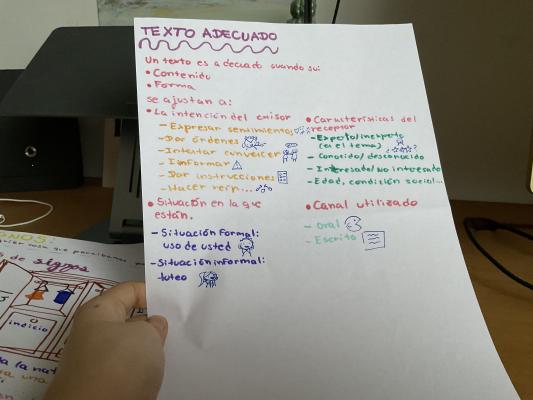 TEXTO ADECUADO
Un texto es adecuado cuando su:
• Contenido
• Forma
se ajustan a:
• La intención del emisor
- Expresar sentimientos
- Dar órdenes
- Intentar convencer
- Informar
- Dar instrucciones
- Hacer reír...
• Situación en la que
están.
- Situación Formal:
uso de usted
- Situación informal:
tuteo
• Características del
receptor
- Experto/inexperto
(en el tema)
- Conocido/desconocido
- Interesado/no interesado
- Edad, condición social...
• Canal utilizado
- Oral
- Escrito
indicio